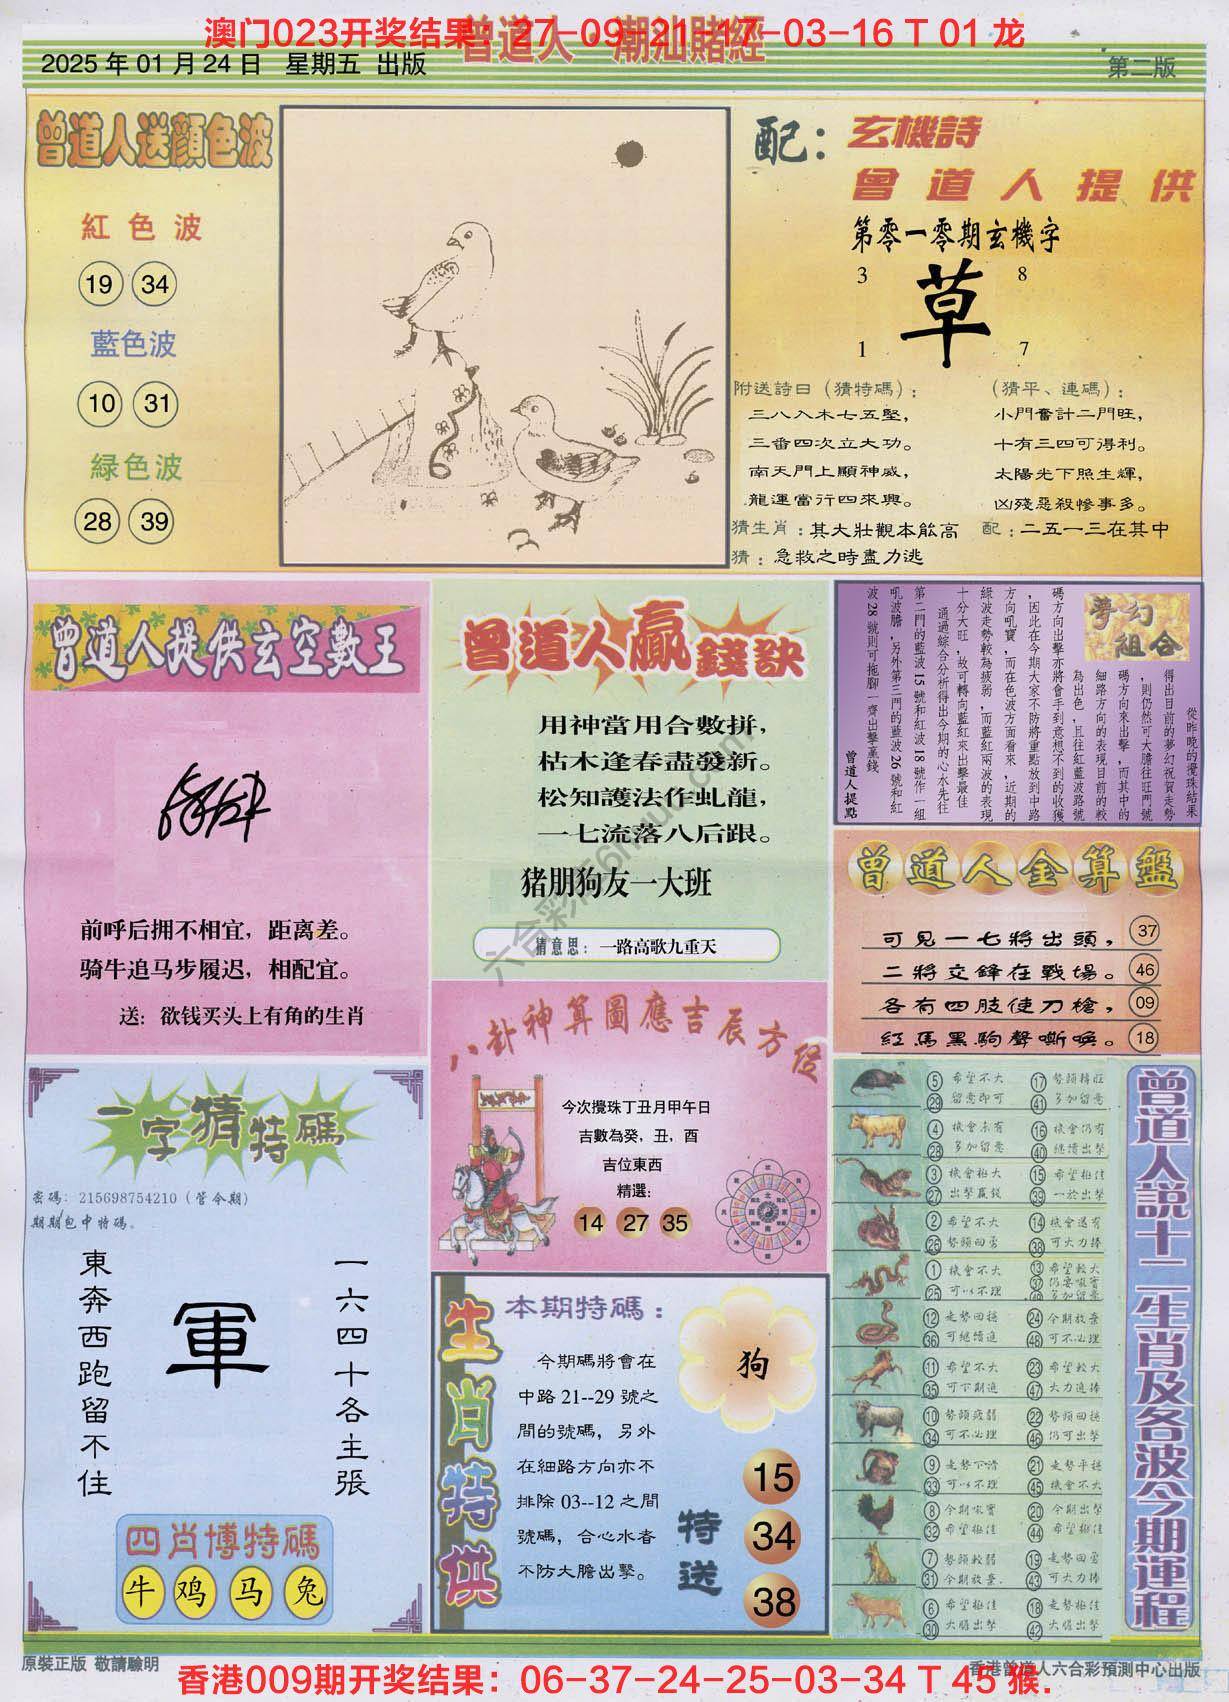 澳门023开奖结果：27-09-21-17-03-16 T 01 龙
曾道人·潮汕賭經
2025 年 01 月 24 日 星期五 出版
第二版
曾道人送顏色波
紅色波
19 34
藍色波
10 31
緑色波
28 39
配：玄機詩
曾道人提供
第零一零期玄機字
3 8
草
1 7
附送詩曰（猜特碼）：
三八入木七五堅，
三番四次立大功。
南天門上顯神威，
龍運當行四來興。
（猜平、連碼）：
小門奮計二門旺，
十有三四可得利。
太陽光下照生輝，
凶殘惡殺慘事多。
猜生肖：其大壯觀本能高
配：二五一三在其中
猜：急救之時盡力逃
曾道人提供玄空數王
前呼后拥不相宜，距离差。
骑牛追马步履迟，相配宜。
送：欲钱买头上有角的生肖
曾道人贏錢訣
用神當用合數拼，
枯木逢春盡發新。
松知護法作虬龍，
一七流落八后跟。
猪朋狗友一大班
猜意思：一路高歌九重天
夢幻組合
從昨晚的攪珠結果
得出目前的夢幻祝賀走勢
，則仍然可大膽往旺門號
碼方向來出擊，而其中的
細路方向的表現目前的較
為出色，且往紅藍波路號
碼方向出擊亦將會手到意想不到的收獲
，因此在今期大家不防將重點放到中路
方向吼寶，而在色波方面看來，近期的
綠波走勢較為疲弱，而藍紅兩波的表現
十分大旺，故可轉向藍紅來出擊最佳
通過綜合分析得出今期的心水先往
第二門的藍波 15 號和紅波 18 號作一組
吼波膽，另外第三門的藍波 26 號和紅
波 28 號則可拖腳一齊出擊贏錢
曾道人提點
曾道人金算盤
可見一七將出頭， 37
二將交鋒在戰場。 46
各有四肢使刀槍， 09
紅馬黑駒聲嘶喚。 18
八卦神算圖應吉辰方位
今次攪珠丁丑月甲午日
吉數為癸，丑，酉
吉位東西
精選：
14 27 35
一字猜特碼
密碼：215698754210（管今期）
期期包中特碼。
東奔西跑留不住
軍
一六四十各主張
四肖博特碼
牛 鸡 马 兔
生肖特供
本期特碼：
今期碼將會在
中路 21--29 號之
間的號碼，另外
在細路方向亦不
排除 03--12 之間
號碼，合心水者
不防大膽出擊。
狗
特送
15
34
38
曾道人説十二生肖及各波今期運程
5 希望不大 17 勢頭轉旺
29 留意即可 41 多加留意
4 機會未有 16 機會仍有
28 多加留意 40 繼續出擊
3 機會極大 15 希望極佳
27 出擊贏錢 39 一於出擊
2 希望不大 14 機會還有
26 勢頭回勇 38 可大力捧
1 機會不大 13 希望較大
25 可以不理
12 走勢回穩 24 今期放棄
36 可繼續追 48 可不必理
11 希望不大 23 希望較大
35 可下期追 47 大力追捧
10 勢頭疲弱 22 勢頭回穩
34 可不必理 46 仍可出擊
9 走勢下滑 21 走勢平穩
33 可以不理 45 機會不大
8 今期吼寶 20 今期出擊
32 希望極佳 44 希望極佳
7 勢頭較弱 19 走勢回勇
31 今期放棄. 43 可大力捧
6 希望極佳 18 走勢極佳
30 大膽出擊 42 大膽出擊
原裝正版 敬請驗明
香港曾道人六合彩預測中心出版
香港009期开奖结果：06-37-24-25-03-34 T 45 猴.